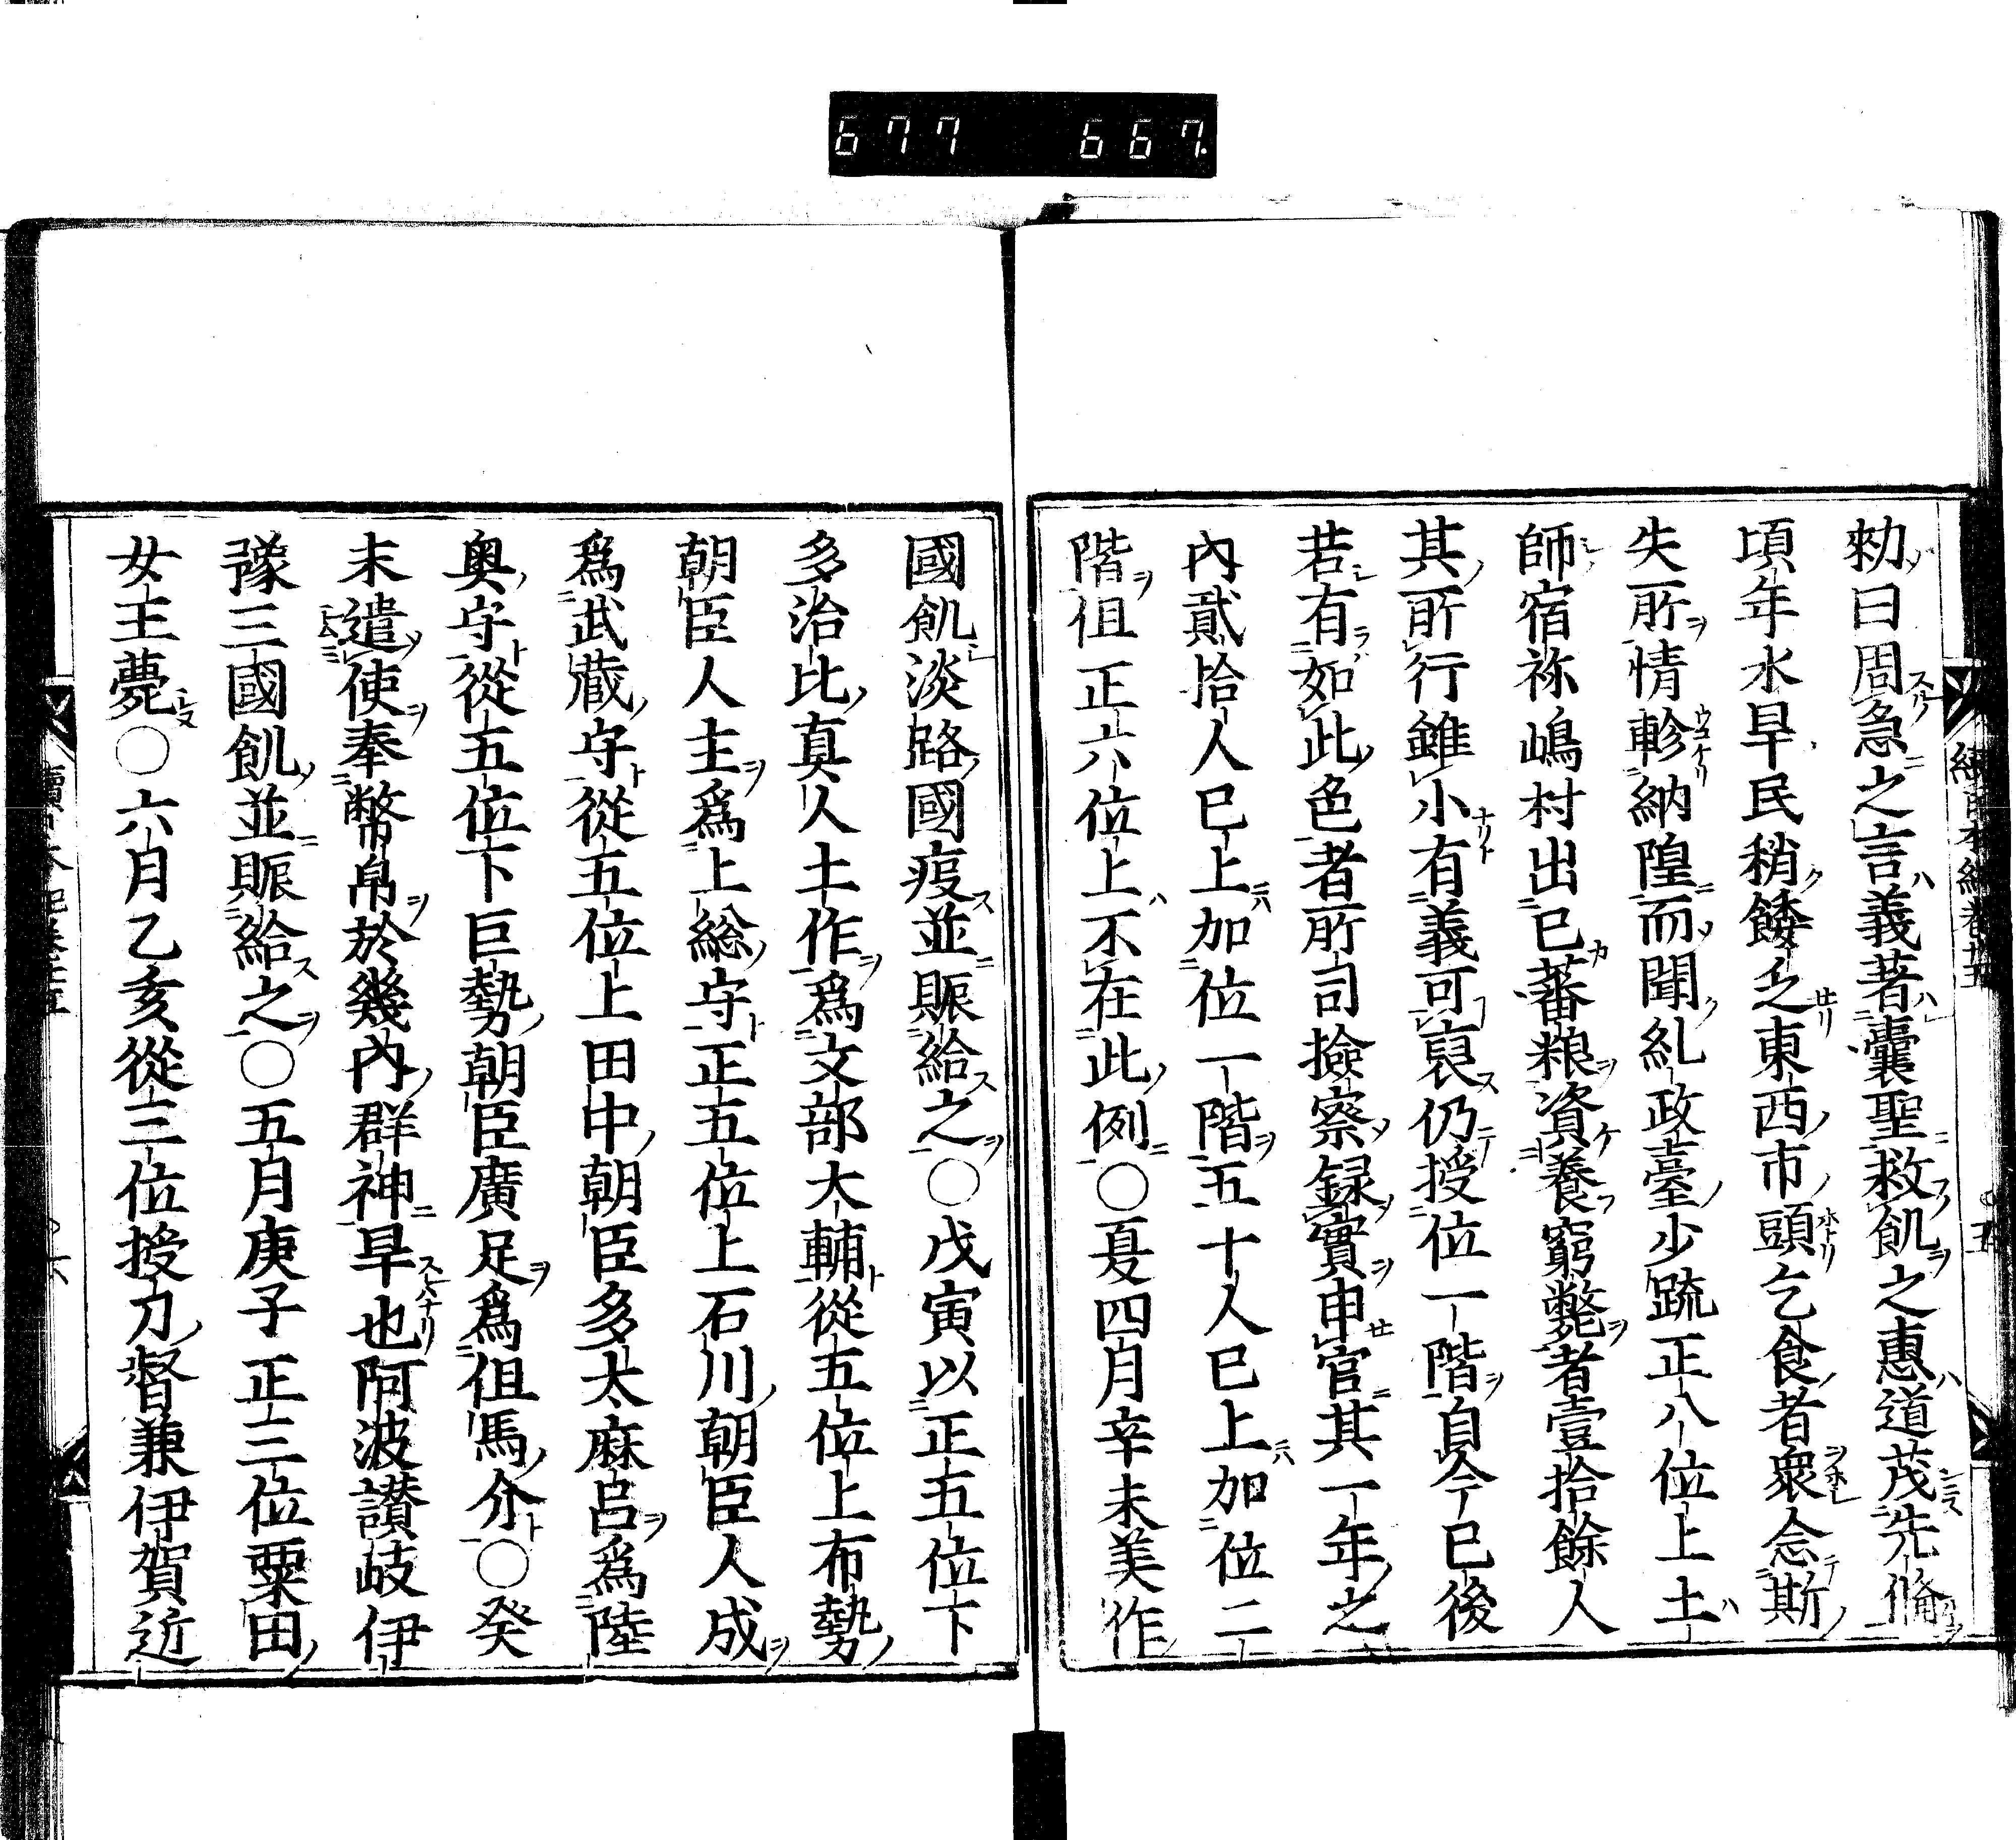 677 667.
勑曰周急之言義著曩聖救飢之惠道茂先脩
頃年水旱民稍餧乏東西市頭乞食者衆念斯
失所情軫納隍而聞糺政臺少䟽正八位上土
師宿祢嶋村出已蕃粮資養窮斃者壹拾餘人
其所行雖小有義可裒仍授位一階自今已後
若有如此色者所司撿察録實申官其一年之
內貳拾人已上加位一階五十人已上加位二
階但正六位上不在此例〇夏四月辛未美作
國飢淡路國疫並賑給之〇戊寅以正五位下
多治比真人土作爲文部大輔從五位上布勢
朝臣人主爲上総守正五位上石川朝臣人成
爲武蔵守從五位上田中朝臣多太麻呂爲陸
奥守從五位下巨勢朝臣廣足爲但馬介〇癸
未遣使奉幣帛於幾內群神旱也阿波讃岐伊
豫三國飢並賑給之〇五月庚子正三位粟田
女王薨〇六月乙亥從三位授刀督兼伊賀近